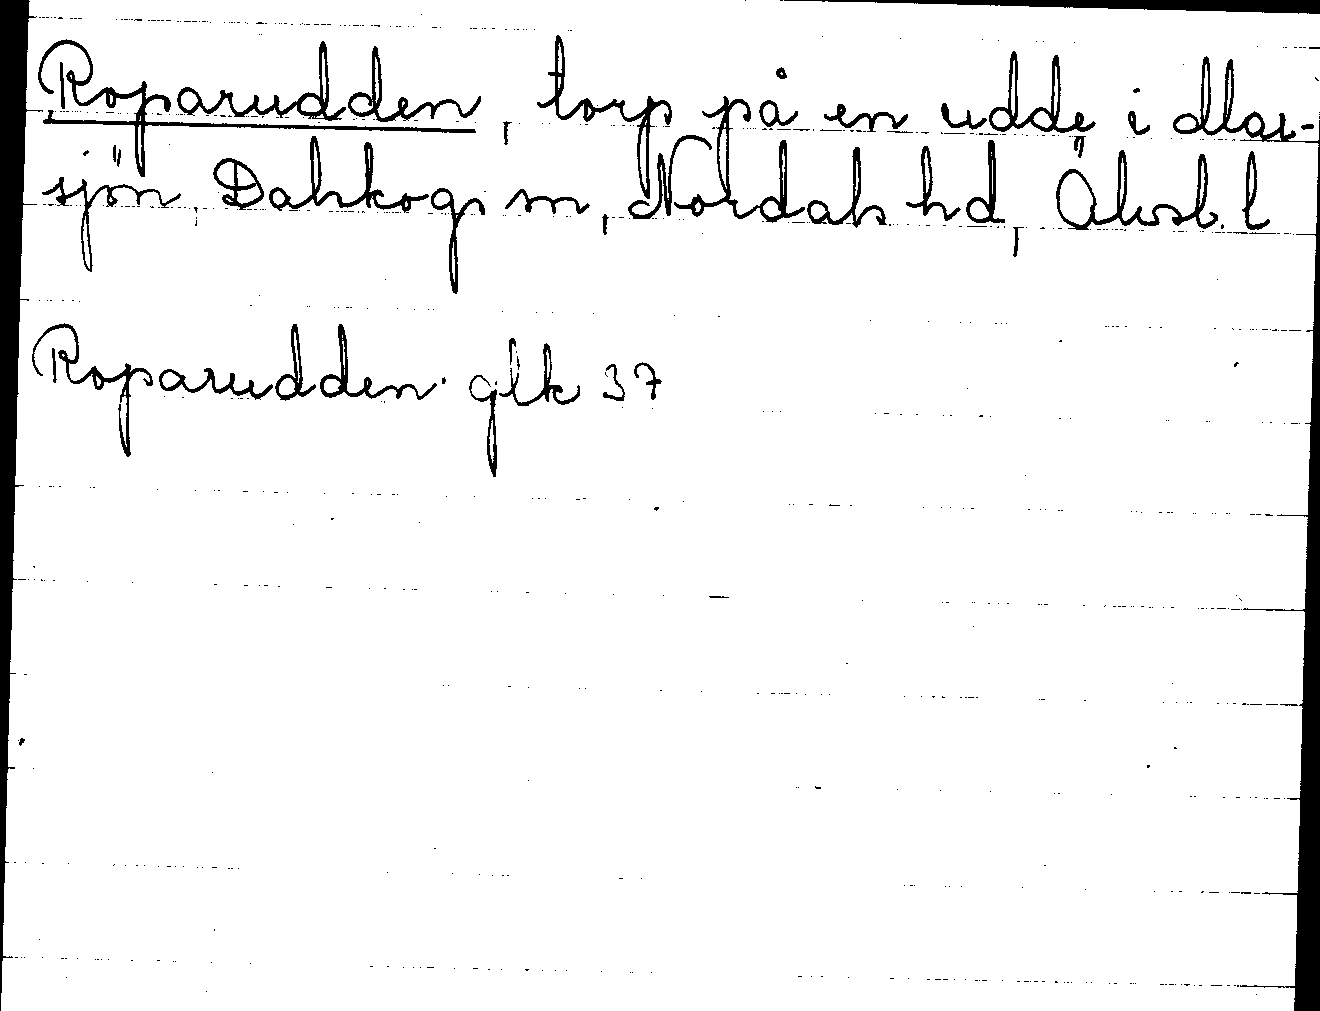 Roparudden, torp på en udde i Mar-
sjön, Dalskogs sn, Nordals hd, Älvsb. l
Roparudden glk 37